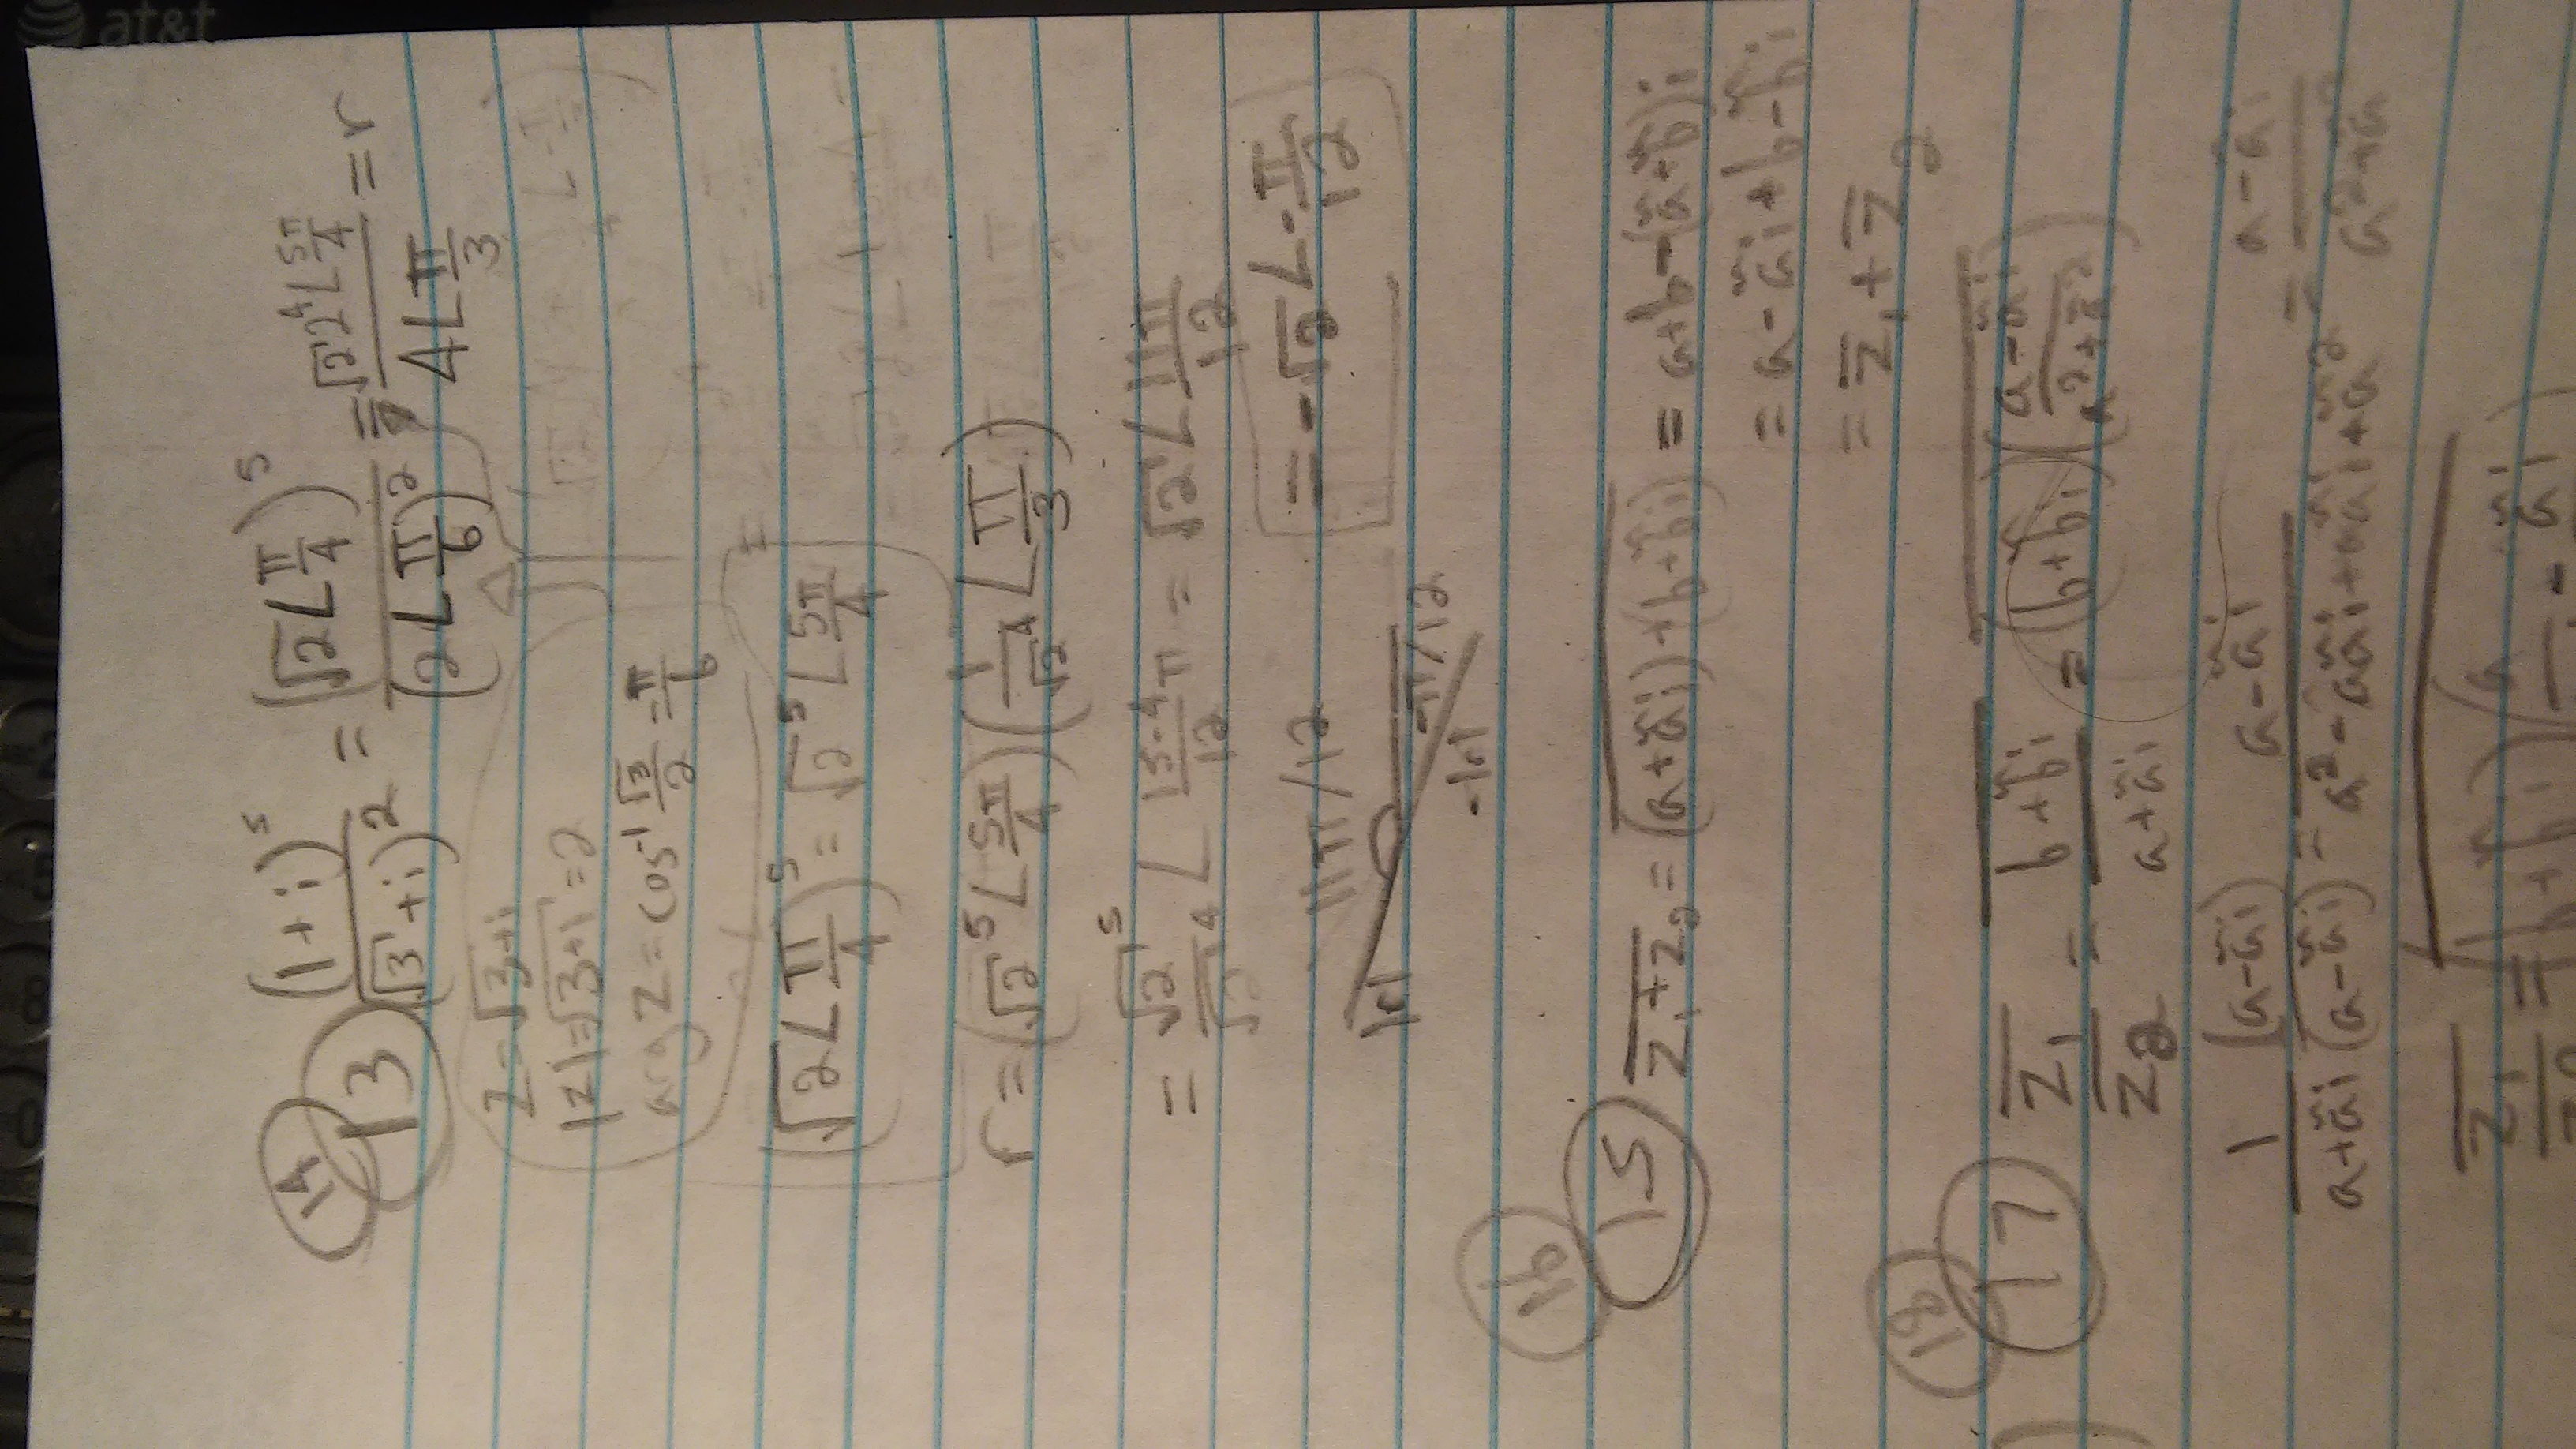 at&t
14
13 (1+i)^5 / (√3+i)^2 = (√2∠π/4)^5 / (2∠π/6)^2 = √2 2^4∠5π/4 / 4∠π/3 = r
z=√3+i
|z|=√3+1=2
arg z = cos^-1 √3/2 = π/6
∠-π/3
(√2∠π/4)^5 = √2^5∠5π/4
r = (√2^5∠5π/4)(1/√2^4∠π/3)
= √2^5/√2^4 ∠ 15-4/12 π = √2∠11π/12
= -√2∠-π/12
11π/12
|r|
-π/12
-|r|
16
15 \overline{z₁+z₂} = \overline{(a+ãi)+(b+b̃i)} = a+b-(ã+b̃)i
= a-ãi+b-b̃i
= z̄₁+z̄₂
18
17 \overline{z₁/z₂} = \overline{b+b̃i / a+ãi} = \overline{(b+b̃i)(a-ãi / a²+ã²)}
1/a+ãi (a-ãi)/(a-ãi) = a-ãi / a²-aãi+aãi+ã² = a-ãi / a²+ã²
z₁/z₂ = (b+b̃i)(a - ãi